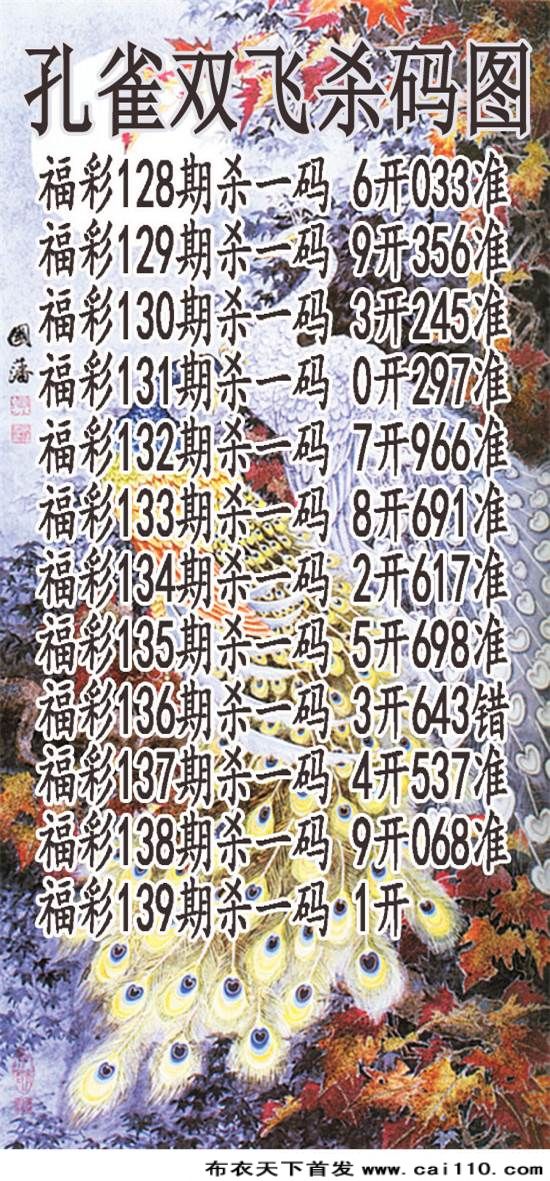 孔雀双飞杀码图
福彩128期杀一码 6开033准
福彩129期杀一码 9开356准
福彩130期杀一码 3开245准
福彩131期杀一码 0开297准
福彩132期杀一码 7开966准
福彩133期杀一码 8开691准
福彩134期杀一码 2开617准
福彩135期杀一码 5开698准
福彩136期杀一码 3开643错
福彩137期杀一码 4开537准
福彩138期杀一码 9开068准
福彩139期杀一码 1开
國藩
布衣天下首发 www.cai110.com